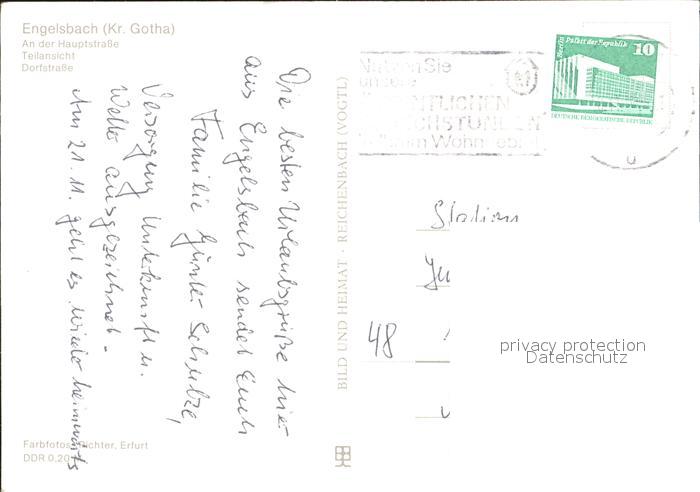 Engelsbach (Kr. Gotha)
An der Hauptstraße
Teilansicht
Dorfstraße
Die besten Urlaubsgrüße hier
aus Engelsbach sendet Euch
Familie Günter Schulze,
Versorgung Unterkunft u.
Wetter ausgezeichnet.
Am 21. 11. geht es wieder heimwärts
Farbfotos: Richter, Erfurt
DDR 0,20
BILD UND HEIMAT · REICHENBACH (VOGTL)
Nutzen Sie
unsere
NTLICHEN
CHSTUNDEN
im Wohn
Berlin Palast der Republik
10
DEUTSCHE DEMOKRATISCHE REPUBLIK
Station
Ju
48
privacy protection
Datenschutz